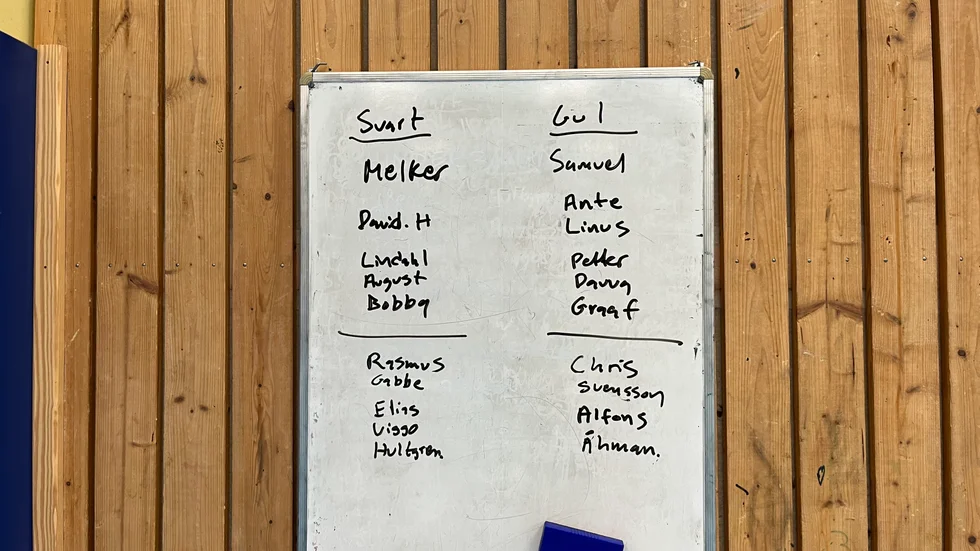 Svart
Melker
David. H
Lindahl
August
Bobby
Rasmus
Gabbe
Elias
Viggo
Hultgren
Gul
Samuel
Ante
Linus
Petter
Graaf
Chris
Svensson
Alfons
Åhman.